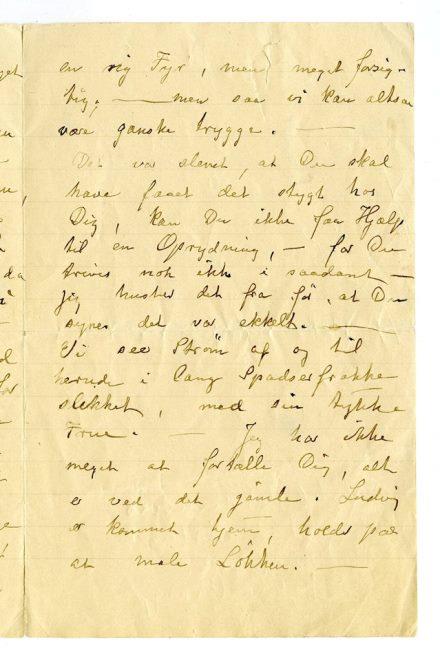 en rig Fyr, men meget forsig-
tig; — men saa vi kan altsaa
være ganske trygge. —
Det var slemt, at Du skal
have faaet det stygt hos
Dig, kan Du ikke faa Hjælp
til en Oprydning, — for Du
trives nok ikke i saadant —
jeg husker det fra før, at Du
synes det var ekkelt. —
Vi see Strøm af og til
herude i lang Spadserfrakke
slikket, med sin tykke
Frue. — Jeg har ikke
meget at fortælle Dig, alt
er ved det gamle. Ludvig
er kommet hjem, holder paa
at male Løkken. —